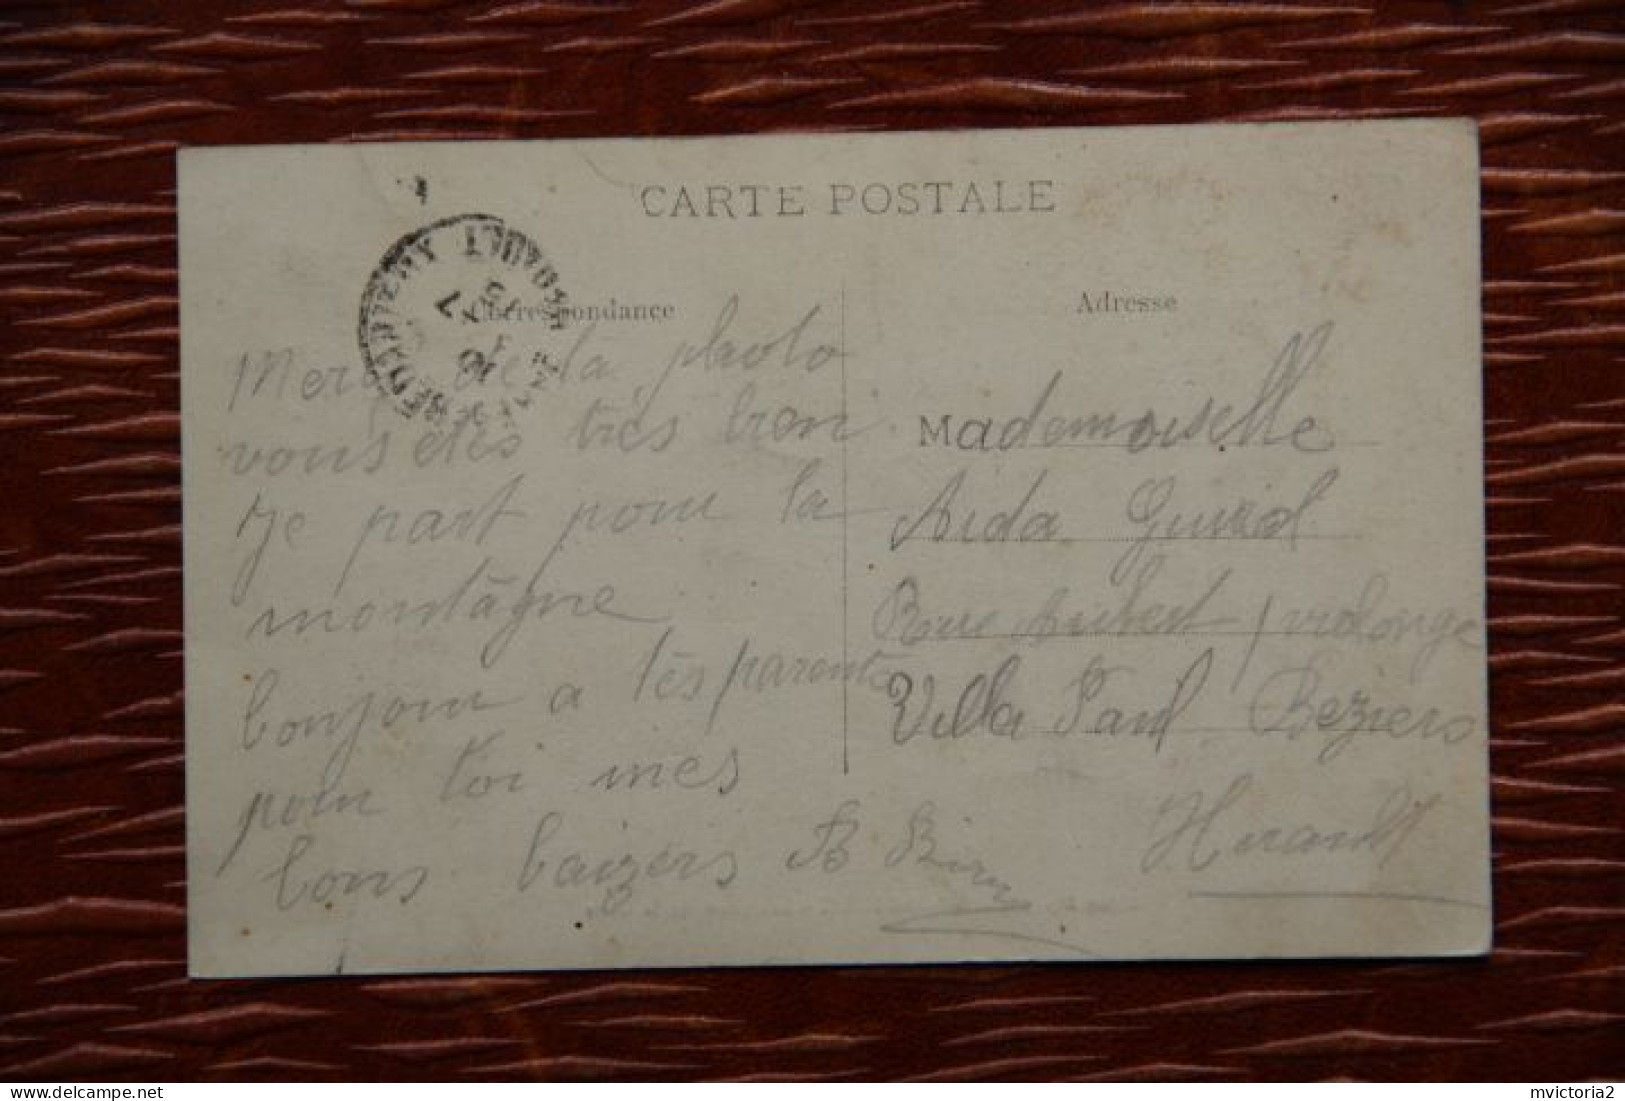 CARTE POSTALE
Correspondance
Adresse
Merci de la photo
vous étes très bien
Je part pour la
montâgne
bonjour a tés parents
pour toi més
bons baizers
Mademoiselle
Aida Guiral
Rue Aubert prolonge
Villa Paul Beziers
Herault
mvictoria2